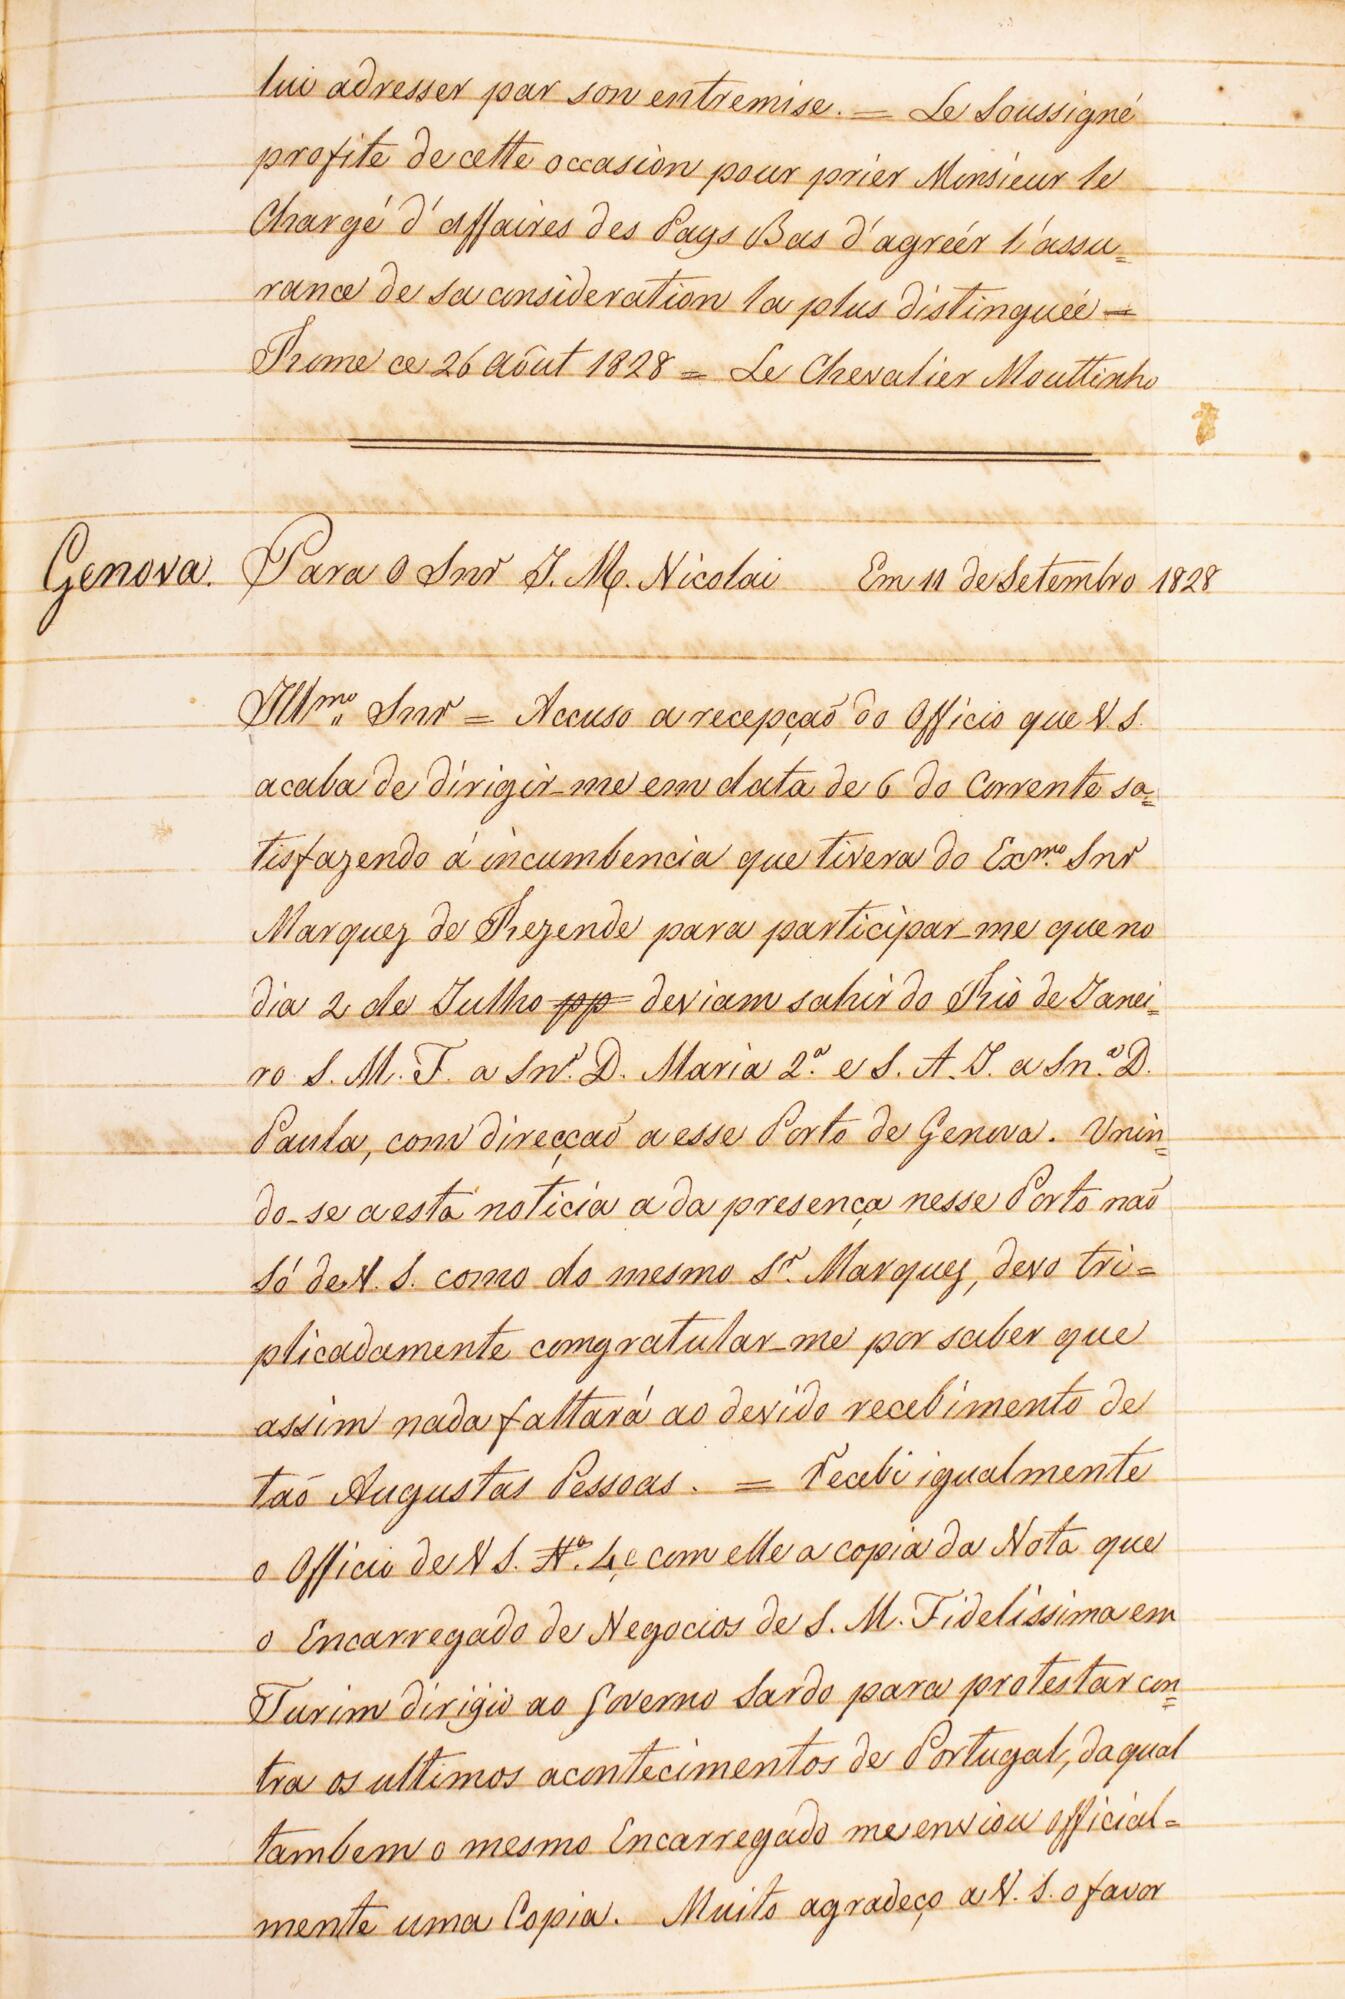 lui adresser par son entremise. = Le Soussigné
profite de cette occasion pour prier Monsieur le
Chargé d'affaires des Pays Bas d'agreér l'assu=
rance de sa consideration la plus distinguéé =
Rome ce 26 Août 1828 = Le Chevalier Mouttinho
Genova. Para o Snr J. M. Nicolai Em 11 de Setembro 1828
Illmo Snr = Accuso a recepçaõ do Officio que V. S.
acaba de dirigir-me em data de 6 do Corrente sa=
tisfazendo á incumbencia que tivera do Exmo. Snr
Marquez de Rezende para participar-me que no
dia 2 de Julho pp deviam sahir do Rio de Janei=
ro S. M. F. a Snr.ª D. Maria 2.ª e S. A. I. a Sn.ª D.
Paula, com direcçaõ a esse Porto de Genova. Unin=
do-se a esta noticia a da presença nesse Porto naõ
só de V. S. como do mesmo Sr. Marquez, devo tri=
plicadamente comgratular-me por saber que
assim nada faltará ao devido recebimento de
taõ Augustas Pessoas. = Recebi igualmente
o Officio de V S. Nº. 4, e com elle a copia da Nota que
o Encarregado de Negocios de S. M. Fidelissima em
Turim dirigio ao Governo Sardo para protestar con=
tra os ultimos acontecimentos de Portugal, da qual
tambem o mesmo Encarregado me enviou official=
mente uma Copia. Muito agradeço a V. S. o favor